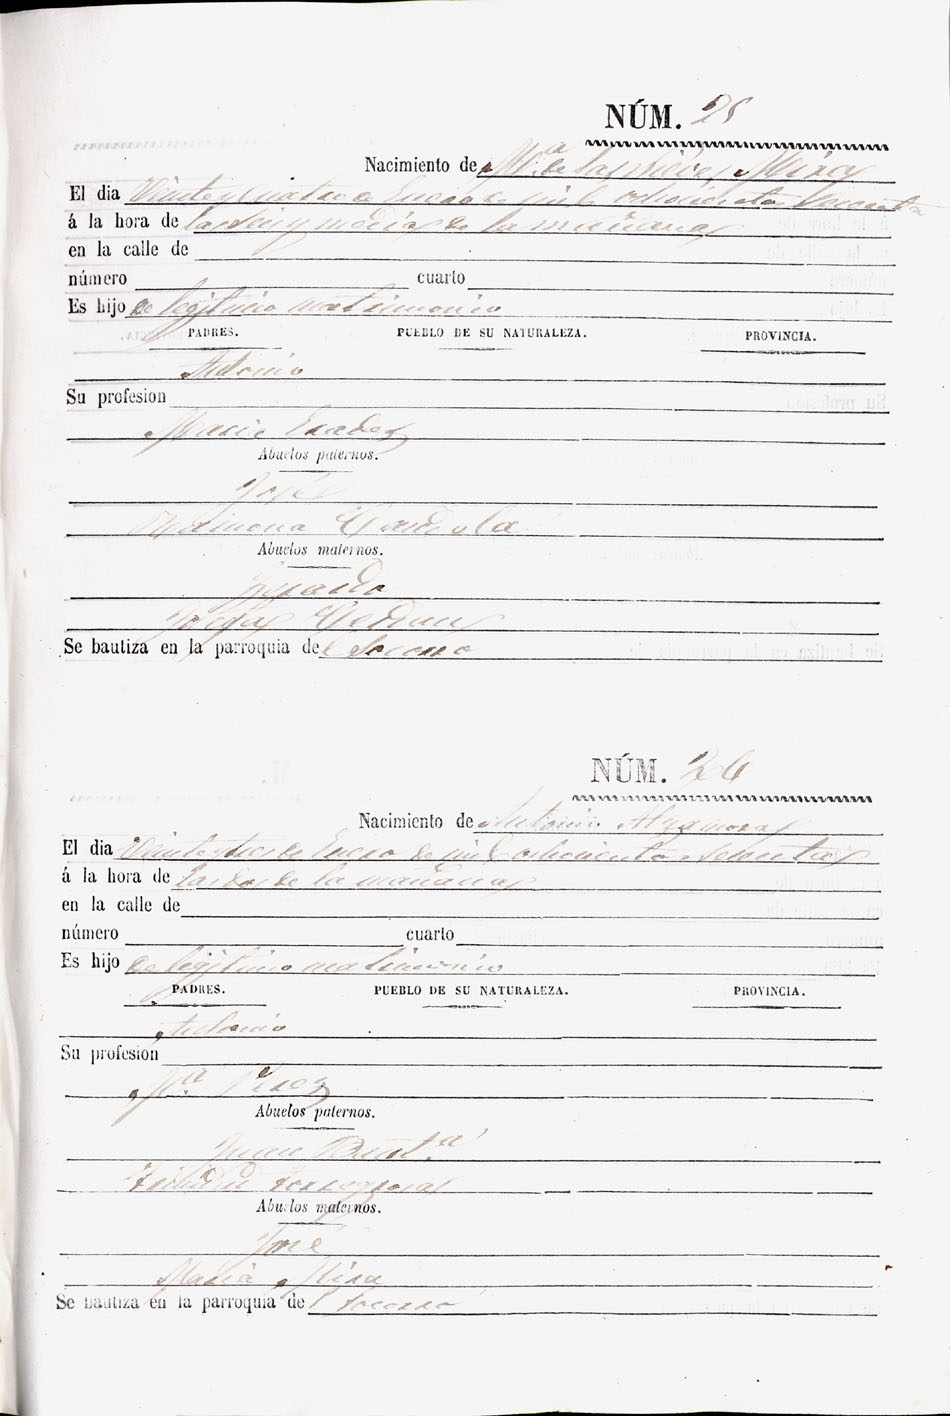 NÚM. 25
Nacimiento de Mª de las Nieves Mira
El dia Veinte y cuatro de Enero de mil ochocientos setenta
á la hora de las seis y media de la mañana
en la calle de
número cuarto
Es hijo de legitimo matrimonio
PADRES. PUEBLO DE SU NATURALEZA. PROVINCIA.
Antonio
Su profesion
Maria Prades
Abuelos paternos.
José
Ramona
Abuelos maternos.
Josefa
Se bautiza en la parroquia del Socorro
NÚM. 26
Nacimiento de Antonio Alzamora
El dia de Enero de mil ochocientos setenta
á la hora de las dos de la mañana
en la calle de
número cuarto
Es hijo de legitimo matrimonio
PADRES. PUEBLO DE SU NATURALEZA. PROVINCIA.
Antonio
Su profesion
Mª Perez
Abuelos paternos.
Juan Bautª
Torregrosa
Abuelos maternos.
José
Maria Mira
Se bautiza en la parroquia de l Socorro